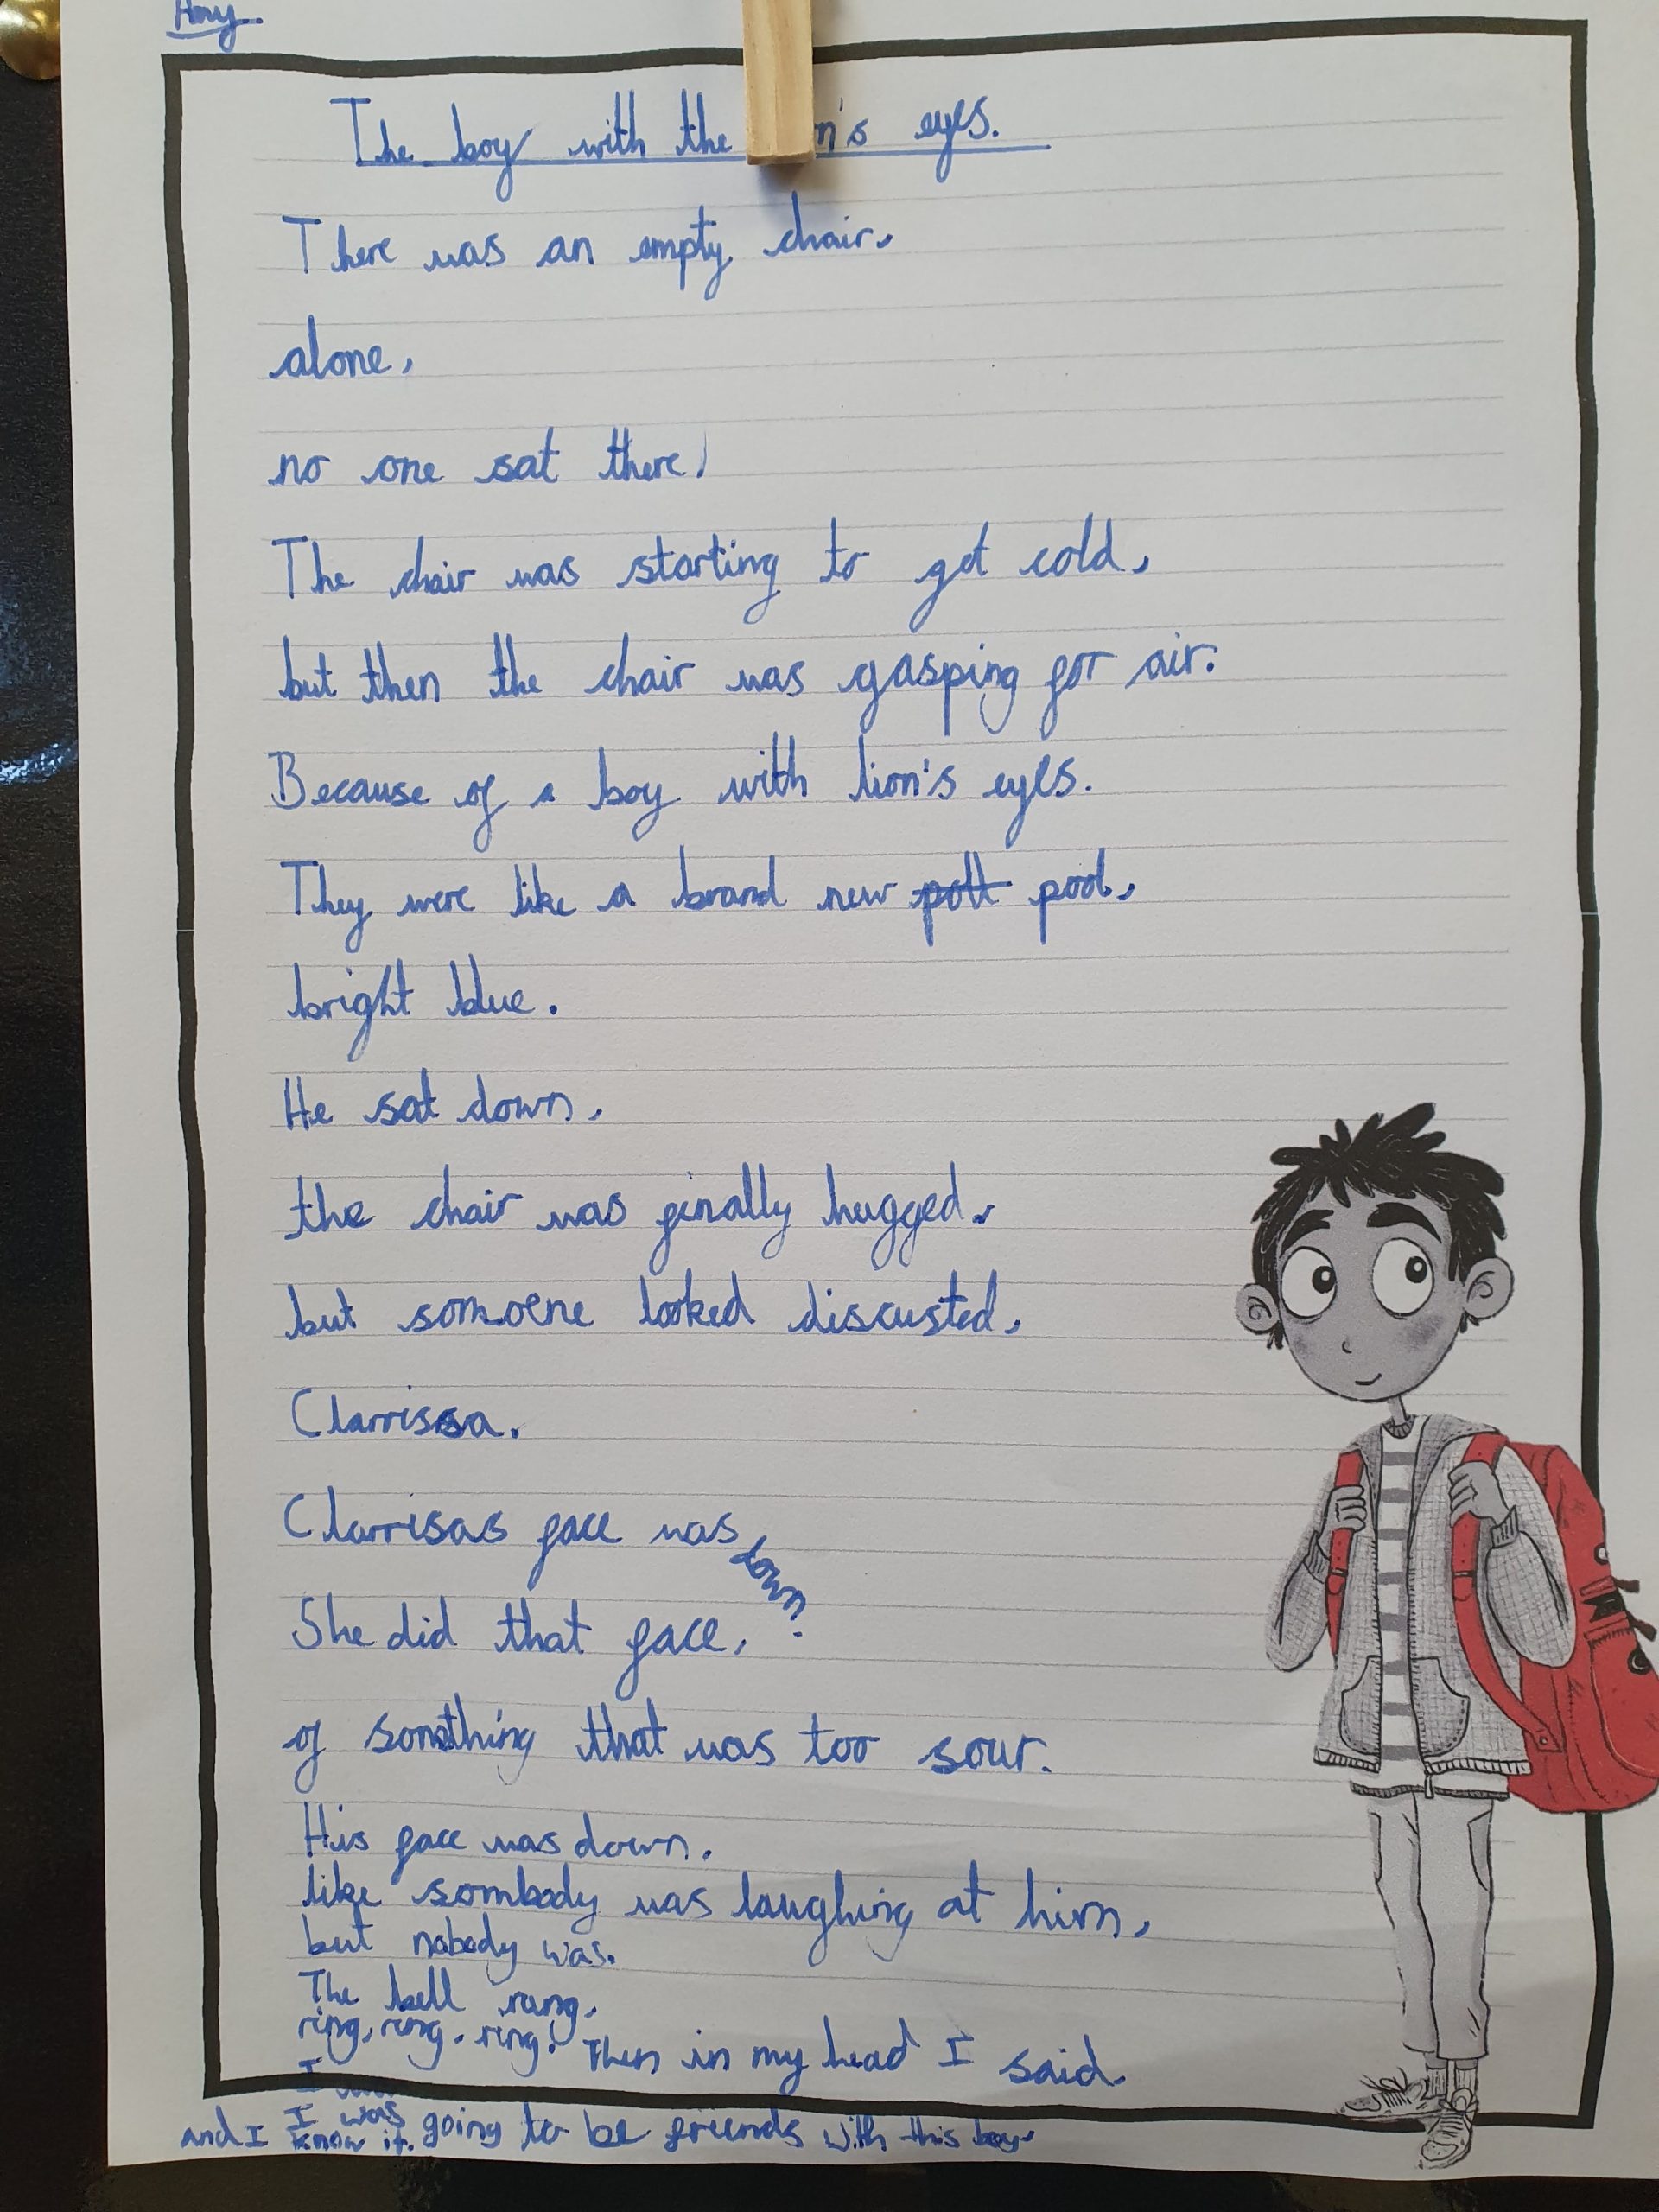 The boy with the n's eyes.
There was an empty chair.
alone,
no one sat there!
The chair was starting to get cold,
but then the chair was gasping for air.
Because of a boy with lion's eyes.
They were like a brand new pool,
bright blue.
He sat down.
the chair was finally hugged.
but somoene looked discusted,
Clarrissa.
Clarrisas face was down.
She did that face,
of somthing that was too sour.
His face was down.
like sombody was laughing at him,
but nobody was.
The bell rang,
ring, ring, ring! Then in my head I said
I
I was going to be friends with this boy
and I know it.